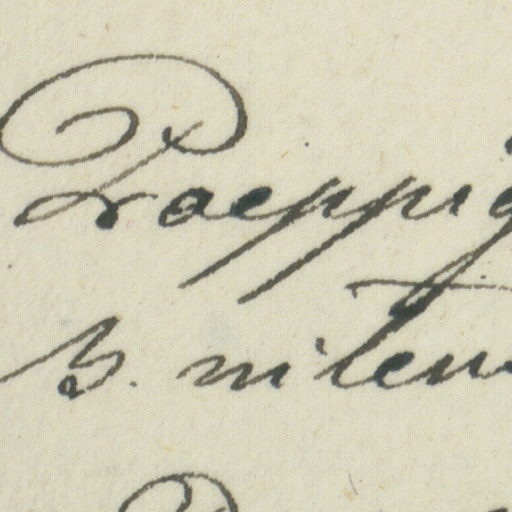 Poeppig
B. niten